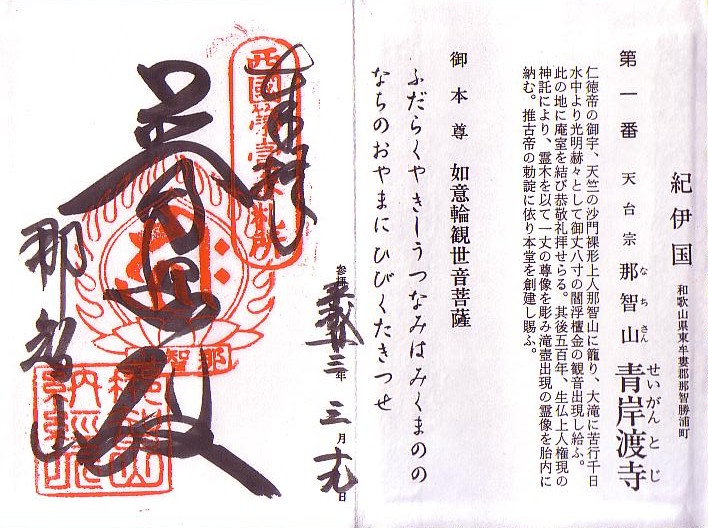 紀伊国
和歌山県東牟婁郡那智勝浦町
第一番 天台宗 那智山 青岸渡寺
なちさん せいがんとじ
仁徳帝の御宇、天竺の沙門裸形上人那智山に籠り、大滝に苦行千日
水中より光明赫々として御丈八寸の閻浮檀金の観音出現し給ふ。
此の地に庵室を結び恭敬礼拝せらる。其後五百年、生仏上人権現の
神託により、霊木を以て一丈の尊像を彫み滝壺出現の霊像を胎内に
納む。推古帝の勅定に依り本堂を創建し賜ふ。
御本尊 如意輪観世音菩薩
ふだらくやきしうつなみはみくまのの
なちのおやまにひびくたきつせ
参拝 三年 三月 日
奉拝
西國第一番札所
那智山
那智山